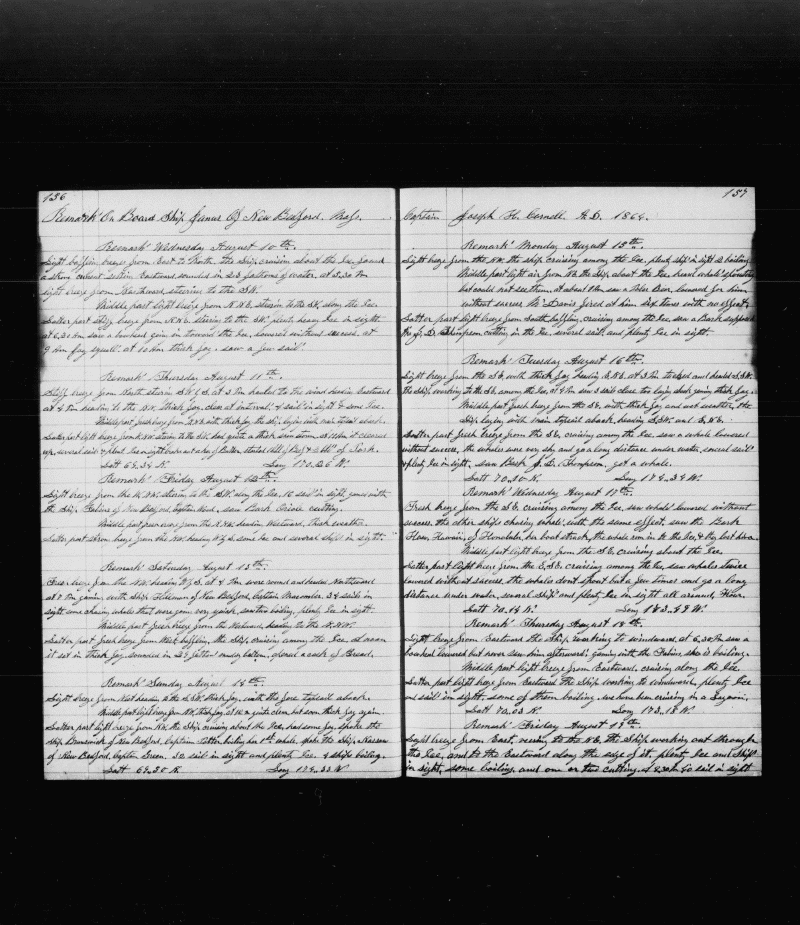 136
Remark On Board Ship Janus Of New Bedford. Mass.
Remark Wednesday August 10th.
Light baffling breeze from East to North. the Ship cruising about the Ice, found
a strong current setting Eastward, sounded in 23 fathoms of water, at 3.30 Pm
light breeze from Northward steering to the SW.
Middle part light breeze from NNE. steering to the SW. along the Ice.
Latter part stiff breeze from NNE steering to the SW. plenty heavy Ice in sight
at 6.30 Am saw a bowhead going in toward the Ice, lowered without success. at
9 Am fog squall. at 10 Am thick fog. saw a few sail.
Remark Thursday August 11th.
Stiff breeze from North steering SW & S. at 3 Pm hauled to the wind heading Eastward
at 4 Pm heading to the NW. thick fog, clear at interval, 4 sail in sight & some Ice.
Middle part fresh breeze from NNE with thick fog, the Ship laying with main topsail aback.
Latter part light breeze from NNW. steering to the SW. had quite a thick
up, several sail & plenty Ice in sight
Latt 69.34 N. Long 176.26 W.
Remark Friday August 12th.
Light breeze from the NNW. steering to the SW. along the Ice, 16 sail in sight, gamed with
the Ship Fabius of New Bedford, Captain Wood, saw Bark Oriole cutting.
Middle part from the NNW. heading Westward, thick weather.
Latter part strong breeze from the NW. heading W & S. some Ice and several Ships in sight.
Remark Saturday August 13th.
Fresh breeze from the NW. heading W & S. at 4 Pm wore round and headed Northward
at 7 Pm gaming with Ship of New Bedford, Captain Macomber. 34 sails in
sight some chasing whales that were going very quick, another boiling, plenty Ice in sight
Middle part fresh breeze from the Westward, heading to the NNW.
Latter part fresh breeze from West baffling, the Ship cruising among the Ice, at noon
it set in thick fog, sounded in 24 fathom muddy bottom, opened a cask of Bread.
Remark Sunday August 14th.
Light breeze from West heading to the SSW. thick fog, with the fore topsail aback.
Middle part light breeze from NW. thick fog, at 10 quite clear but soon thick fog again.
Latter part light breeze from NW. the Ship cruising about the Ice, had some fog, spoke the
Ship Brunswick of New Bedford, Captain Potter boiling his 1st whale, spoke the Ship Nassau
of New Bedford, Captain Green. 32 sail in sight and plenty Ice. 4 ships boiling.
Latt 69.50 N. Long 174.33 W.
137
Captain Joseph H. Cornell. A.D. 1864.
Remark Monday August 15th.
Light breeze from the NW. the ship cruising among the Ice, plenty ship in sight & boiling.
Middle part light air from NW the Ship about the Ice heard whale's spouting
but could not see them, at about 1 Am saw a Polar Bear, lowered for him
without success Mr Davis fired at him six times with no effect.
Latter part light breeze from South baffling, cruising among the Ice saw a Bark supposed
the J. D. Thompson cutting in the Ice, several sail and plenty Ice in sight.
Remark Tuesday August 16th.
Light breeze from the SE. with thick fog heading ENE. at 3 Pm tacked and headed SSW.
the Ship working to the SE. among the Ice, at 4 Pm saw 3 sail close too laying aback gaming thick fog.
Middle part fresh breeze from the SE. with thick fog and wet weather, the
Ship laying with main topsail aback, heading SSW. and ENE.
Latter part fresh breeze from the SE. cruising among the Ice, saw a whale lowered
without success, the whales were very shy and go a long distance under water, several sail
& plenty Ice in sight. saw Bark J. D. Thompson, got a whale.
Latt 70.10 N. Long 174.34 W.
Remark Wednesday August 17th.
Fresh breeze from the SE. cruising among the Ice, saw whale lowered without
success. the other ships chasing whale, with the same effect, saw the Bark
Hae Hawaii, of Honolulu, her boat struck, the whale run in to the Ice, & they lost him.
Middle part light breeze from the SE. cruising about the Ice.
Latter part light breeze from the ESE. cruising among the Ice, saw whales twice
lowered without success, the whales dont spout but a few times and go a long
distance under water, several ship and plenty Ice in sight all around
Latt 70.14 N. Long 173.49 W.
Remark Thursday August 18th.
Light breeze from Eastward the Ship working to windward, at 6.30 Pm saw a
bowhead lowered but never saw him afterward. gaming with the Fabius, she is boiling.
Middle part light breeze from Eastward, cruising along the Ice.
Latter part light breeze from Eastward the Ship working to windward, plenty Ice
and sail in sight, some of them boiling, we have been cruising in a Lagoon.
Latt 70.03 N. Long 173.18 W.
Remark Friday August 19th.
Light breeze from East, veering to the NE. the Ship working out through
the Ice, and to the Eastward along the edge of it, plenty Ice and ship's
in sight, some boiling, and one or two cutting, at 4.30 Pm 40 sail in sight